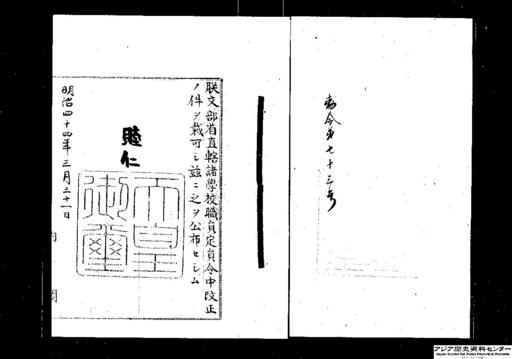 勅令第七十三号
朕文部省直轄諸学校職員定員令中改正
ノ件ヲ裁可シ茲ニ之ヲ公布セシム
睦仁
天皇御璽
明治四十四年三月三十一日
内閣
アジア歴史資料センター
Japan Center for Asian Historical Records